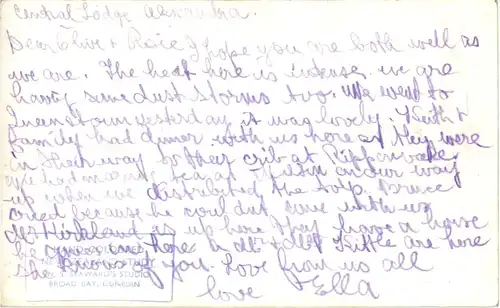 Central Lodge Alexandra.
Dear Clive + Rose I hope you are both well as
we are. The heat here is intense. we are
having some dust storms too. We went to
Queenstown yesterday it was lovely. Keith +
family had dinner with us here as they were
on their way to their crib at
we had at on our way
up when we distributed the Bruce
cried because he couldnt come with us
Mr Kirkland is up here they have a house
he here Mr + Mrs Kittle are here
she knows of you. Love from us all
love Ella
STUDIO
BROAD BAY, DUNEDIN